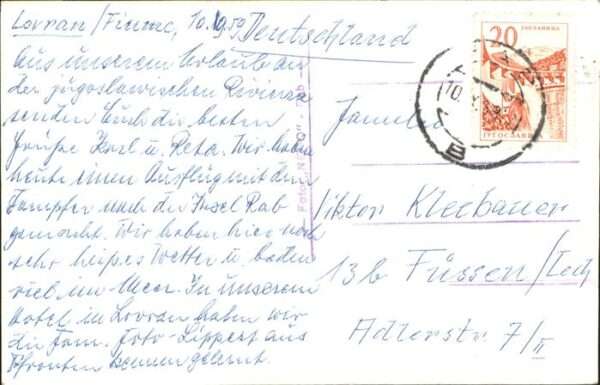 Lovran/Fiume, 10.9.59
Deutschland
Aus unserem Urlaub an
der jugoslawischen Riviera
senden Euch die besten
Grüße Karl u. Reta. Wir haben
heute einen Ausflug mit dem
Dampfer nach der Insel Rab
gemacht. Wir haben hier noch
sehr heißes Wetter u. baden
viel im Meer. In unserem
Hotel in Lovran haben wir
die Fam. Foto-Lippert aus
Pfronten kennen gelernt.
Familie
Viktor Kleebauer
13b Füssen/Lech
Adlerstr. 7/II
Foto "
" - Rab
20
JUGOSLAVIJA